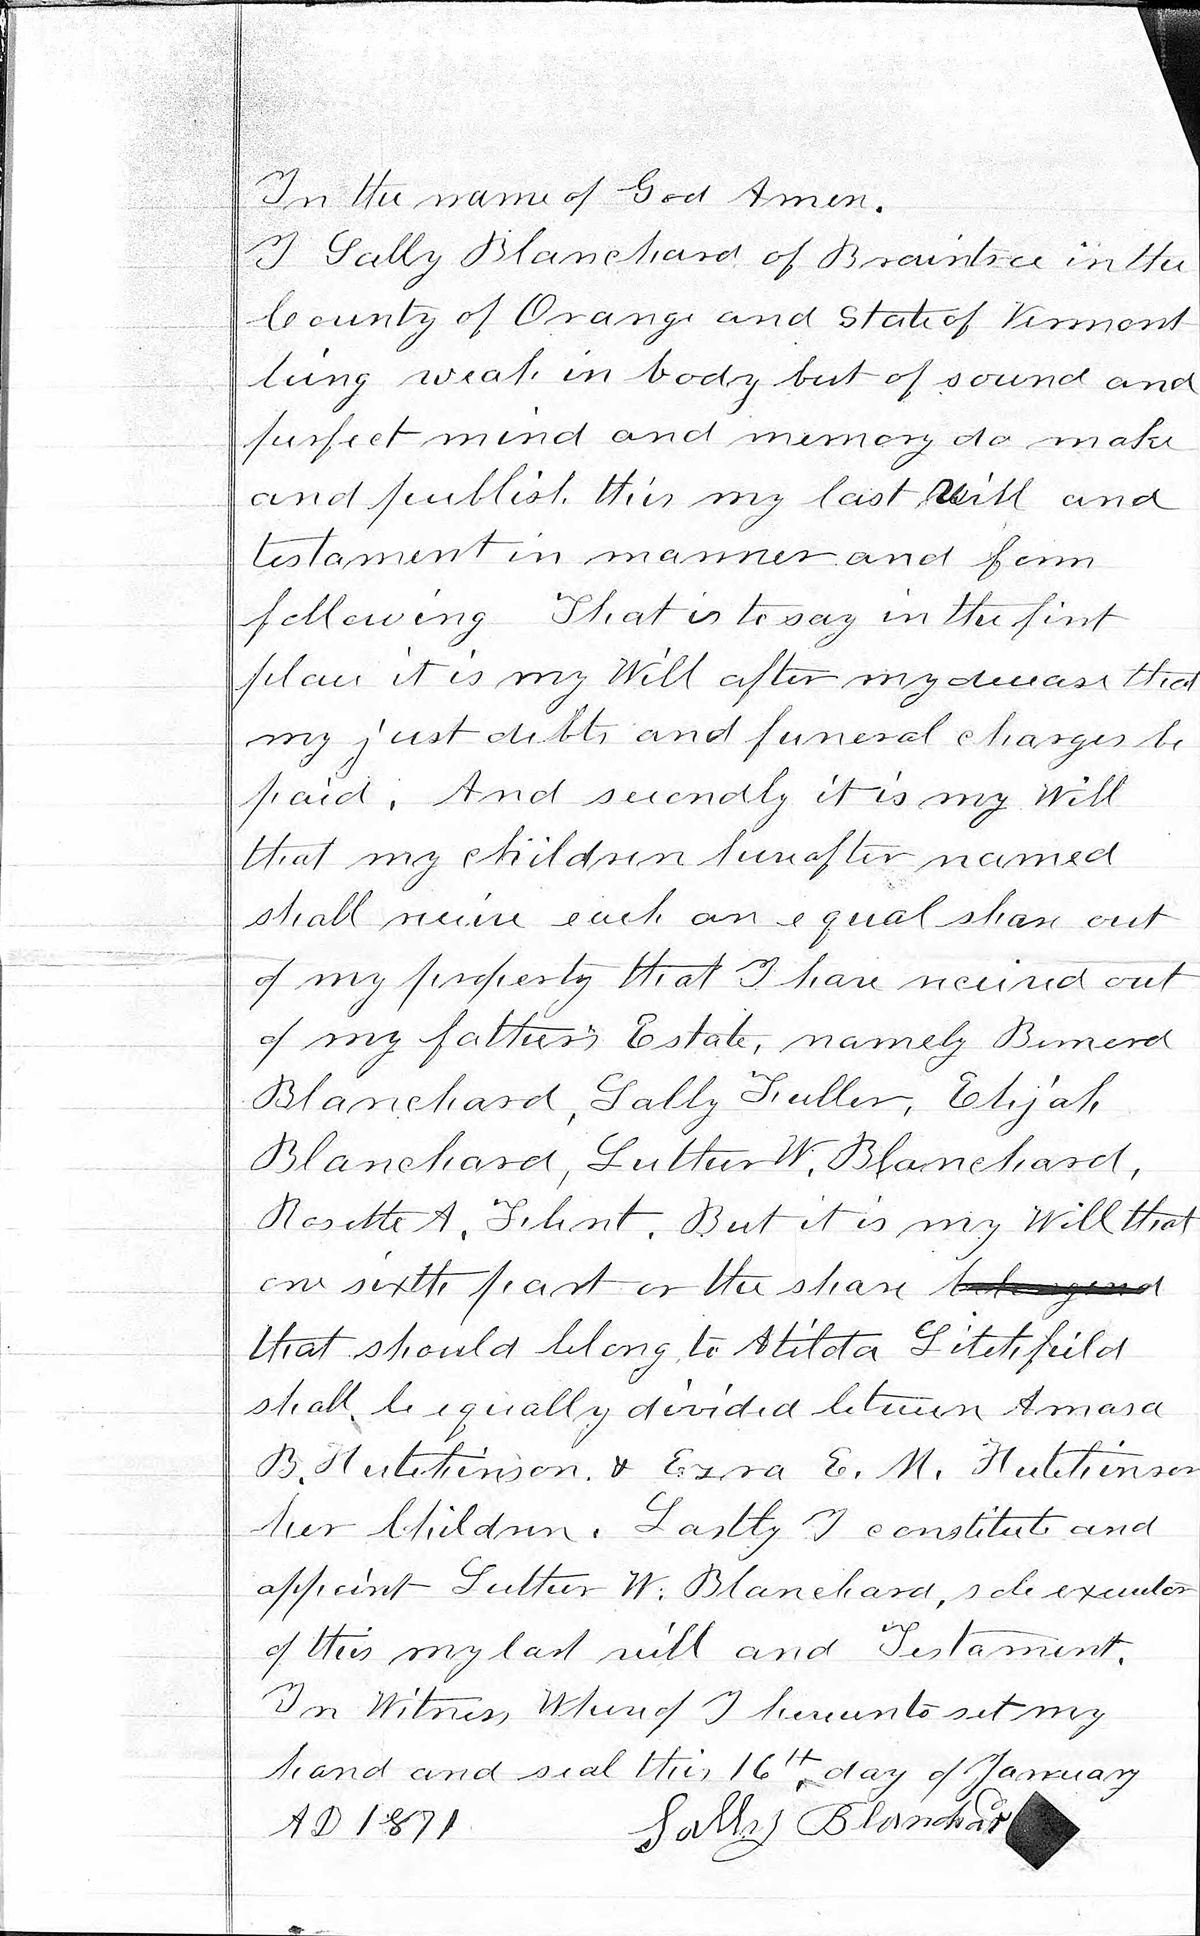 In the name of God Amen.
I Sally Blanchard of Braintree in the
County of Orange and State of Vermont
being weak in body but of sound and
perfect mind and memory do make
and publish this my last Will and
testament in manner and form
following That is to say in the first
place it is my Will after my decease that
my just debts and funeral charges be
paid. And secondly it is my Will
that my children hereafter named
shall receive each an equal share out
of my property that I have received out
of my father's Estate, namely
Blanchard, Sally Fuller, Elijah
Blanchard, Luther W. Blanchard,
Rosette A. Flint. But it is my Will that
one sixth part or the share belongend
that should belong to Atilda Litchfield
shall be equally divided between Amasa
B. Hutchinson. & Ezra E. M. Hutchinson
her Children. Lastly I constitute and
appoint Luther W. Blanchard, sole executor
of this my last will and Testament.
In Witness Whereof I hereunto set my
hand and seal this 16th day of January
AD 1871 Sally Blanchard